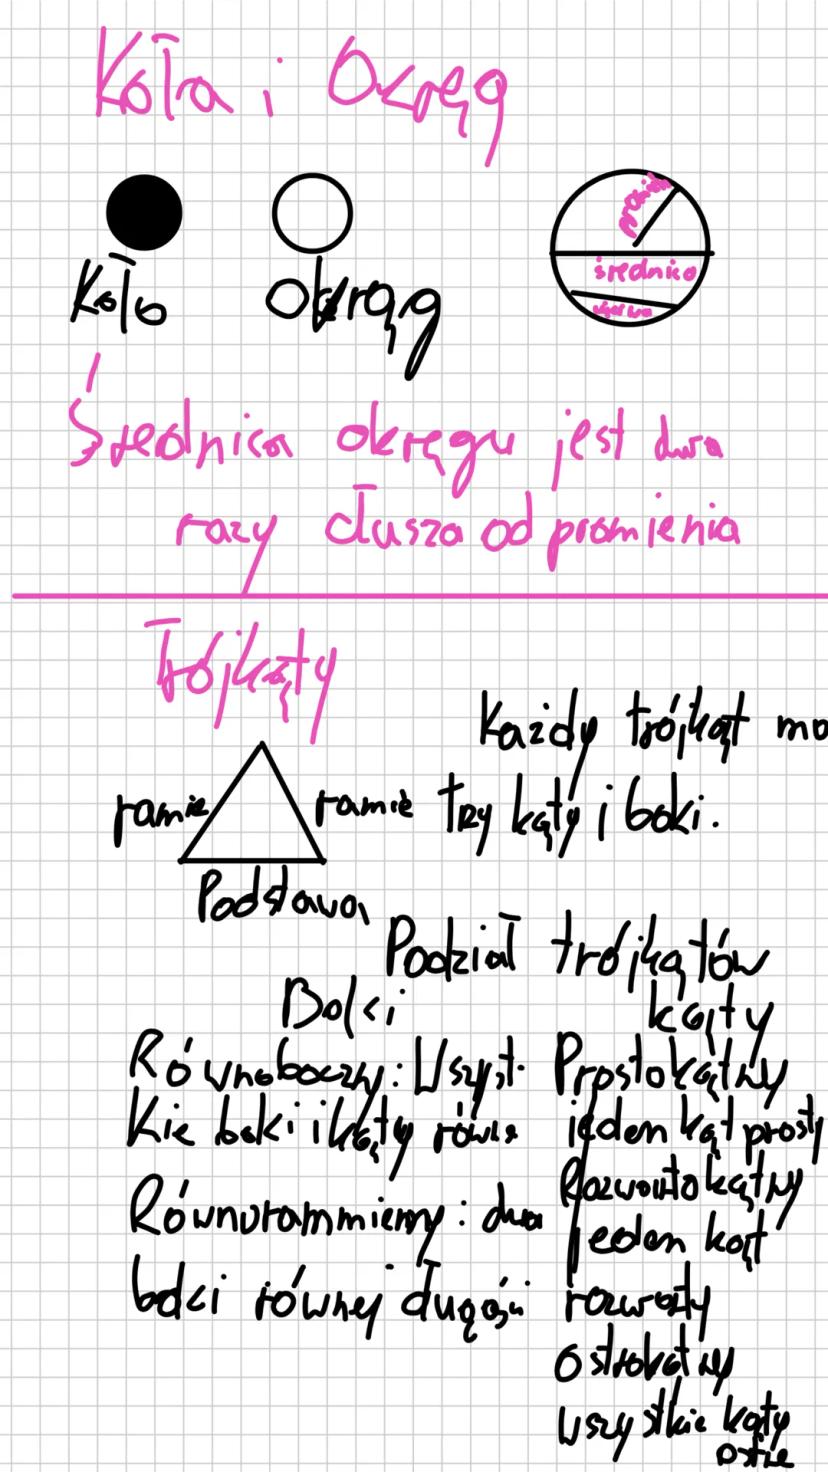 Koła i Okręg
Koło
okrąg
promień
średnica
cięciwa
Średnica okręgu jest dwa
razy dłusza od promienia
Trójkąty
ramie
ramie
Podstawa
Każdy trójkąt ma
trzy kąty i boki.
Podział trójkątów
Boki
kąty
Równoboczny: Wszyst-
kie boki i kąty równe
Równorammienny: dwa
boki równej długości
Prostokątny
jeden kąt prosty
Rozwartokątny
jeden kąt
rozwarty
ostrokątny
wszystkie kąty
ostre